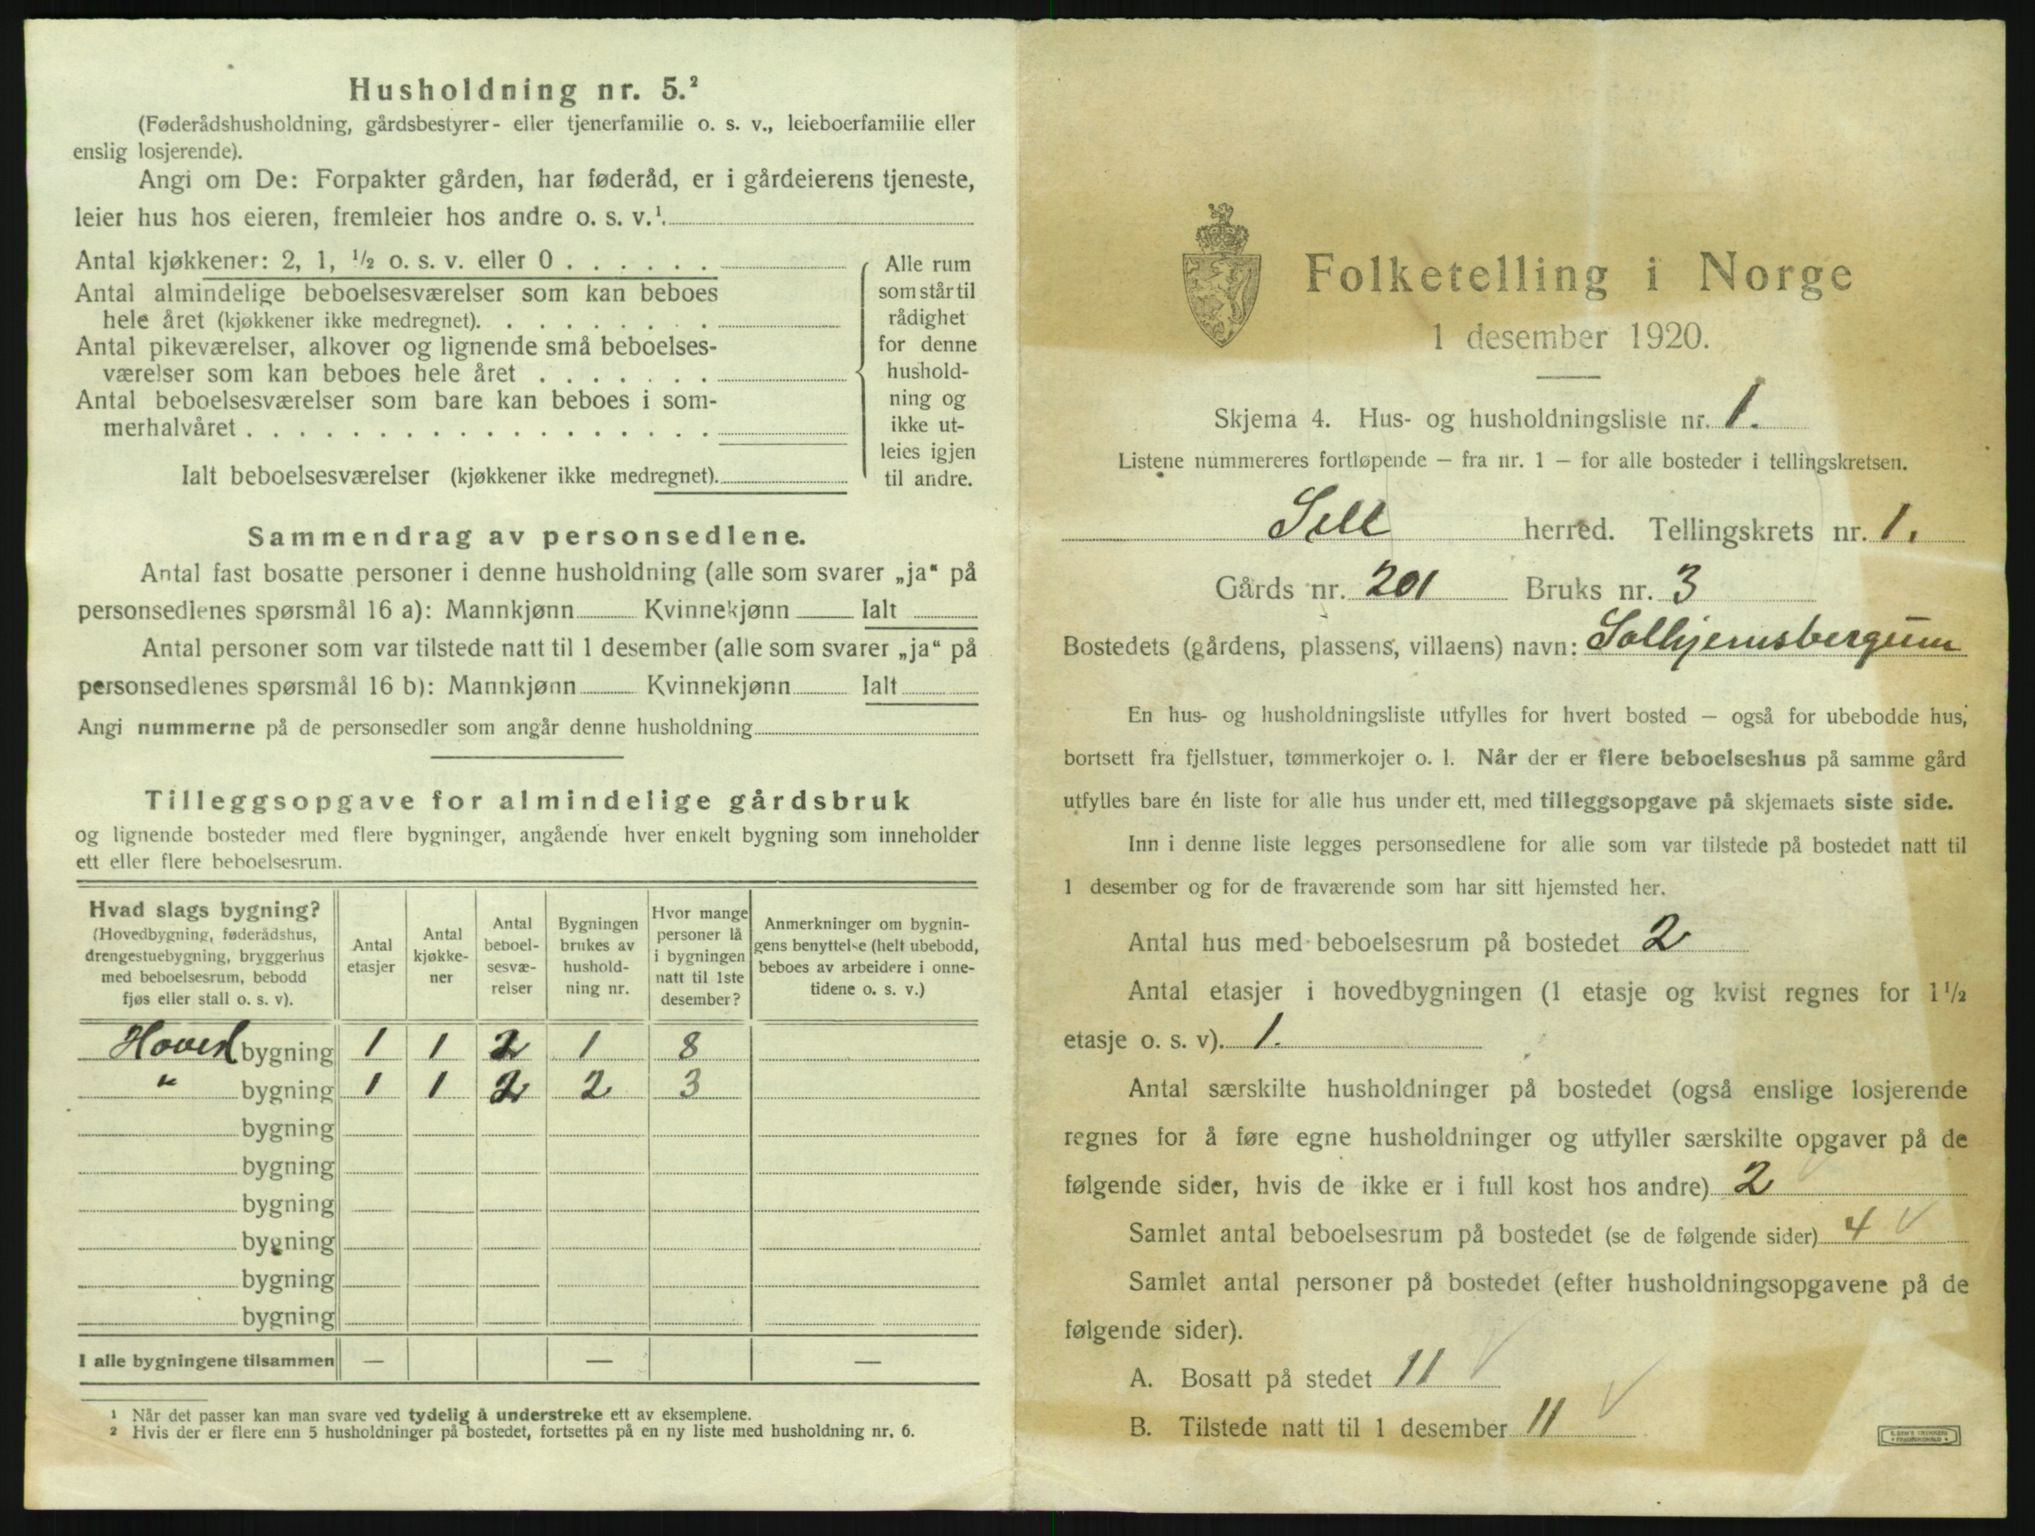 Husholdning nr. 5.²
(Føderådshusholdning, gårdsbestyrer- eller tjenerfamilie o. s. v., leieboerfamilie eller
enslig losjerende).
Angi om De: Forpakter gården, har føderåd, er i gårdeierens tjeneste,
leier hus hos eieren, fremleier hos andre o. s. v.¹.
Antal kjøkkener: 2, 1, ½ o. s. v. eller 0 . . . . . .
Antal almindelige beboelsesværelser som kan beboes
hele året (kjøkkener ikke medregnet). . . . . . . . .
Antal pikeværelser, alkover og lignende små beboelses-
værelser som kan beboes hele året . . . . . . .
Antal beboelsesværelser som bare kan beboes i som-
merhalvåret . . . . . . . . . . . . . . . . . .
Ialt beboelsesværelser (kjøkkener ikke medregnet).
Alle rum
som står til
rådighet
for denne
hushold-
ning og
ikke ut-
leies igjen
til andre.
Sammendrag av personsedlene.
Antal fast bosatte personer i denne husholdning (alle som svarer „ja“ på
personsedlenes spørsmål 16 a): Mannkjønn Kvinnekjønn Ialt
Antal personer som var tilstede natt til 1 desember (alle som svarer „ja“ på
personsedlenes spørsmål 16 b): Mannkjønn Kvinnekjønn Ialt
Angi nummerne på de personsedler som angår denne husholdning
Tilleggsopgave for almindelige gårdsbruk
og lignende bosteder med flere bygninger, angående hver enkelt bygning som inneholder
ett eller flere beboelsesrum.
Hvad slags bygning?
(Hovedbygning, føderådshus,
drengestuebygning, bryggerhus
med beboelsesrum, bebodd
fjøs eller stall o. s. v).
Antal
etasjer
Antal
kjøkke-
ner
Antal
beboel-
sesvæ-
relser
Bygningen
brukes av
hushold-
ning nr.
Hvor mange
personer lå
i bygningen
natt til 1ste
desember?
Anmerkninger om bygnin-
gens benyttelse (helt ubebodd,
beboes av arbeidere i onne-
tidene o. s. v.)
Hoved bygning 1 1 2 1 8
" bygning 1 1 2 2 3
bygning
bygning
bygning
bygning
bygning
bygning
I alle bygningene tilsammen — — —
¹ Når det passer kan man svare ved tydelig å understreke ett av eksemplene.
² Hvis der er flere enn 5 husholdninger på bostedet, fortsettes på en ny liste med husholdning nr. 6.
Folketelling i Norge
1 desember 1920.
Skjema 4. Hus- og husholdningsliste nr. 1.
Listene nummereres fortløpende — fra nr. 1 — for alle bosteder i tellingskretsen.
Sell herred. Tellingskrets nr. 1.
Gårds nr. 201 Bruks nr. 3
Bostedets (gårdens, plassens, villaens) navn: Solhjemsbergum
En hus- og husholdningsliste utfylles for hvert bosted — også for ubebodde hus,
bortsett fra fjellstuer, tømmerkojer o. l. Når der er flere beboelseshus på samme gård
utfylles bare én liste for alle hus under ett, med tilleggsopgave på skjemaets siste side.
Inn i denne liste legges personsedlene for alle som var tilstede på bostedet natt til
1 desember og for de fraværende som har sitt hjemsted her.
Antal hus med beboelsesrum på bostedet 2
Antal etasjer i hovedbygningen (1 etasje og kvist regnes for 1½
etasje o. s. v). 1.
Antal særskilte husholdninger på bostedet (også enslige losjerende
regnes for å føre egne husholdninger og utfyller særskilte opgaver på de
følgende sider, hvis de ikke er i full kost hos andre) 2
Samlet antal beboelsesrum på bostedet (se de følgende sider) 4 ✓
Samlet antal personer på bostedet (efter husholdningsopgavene på de
følgende sider).
A. Bosatt på stedet 11 ✓
B. Tilstede natt til 1 desember 11 ✓